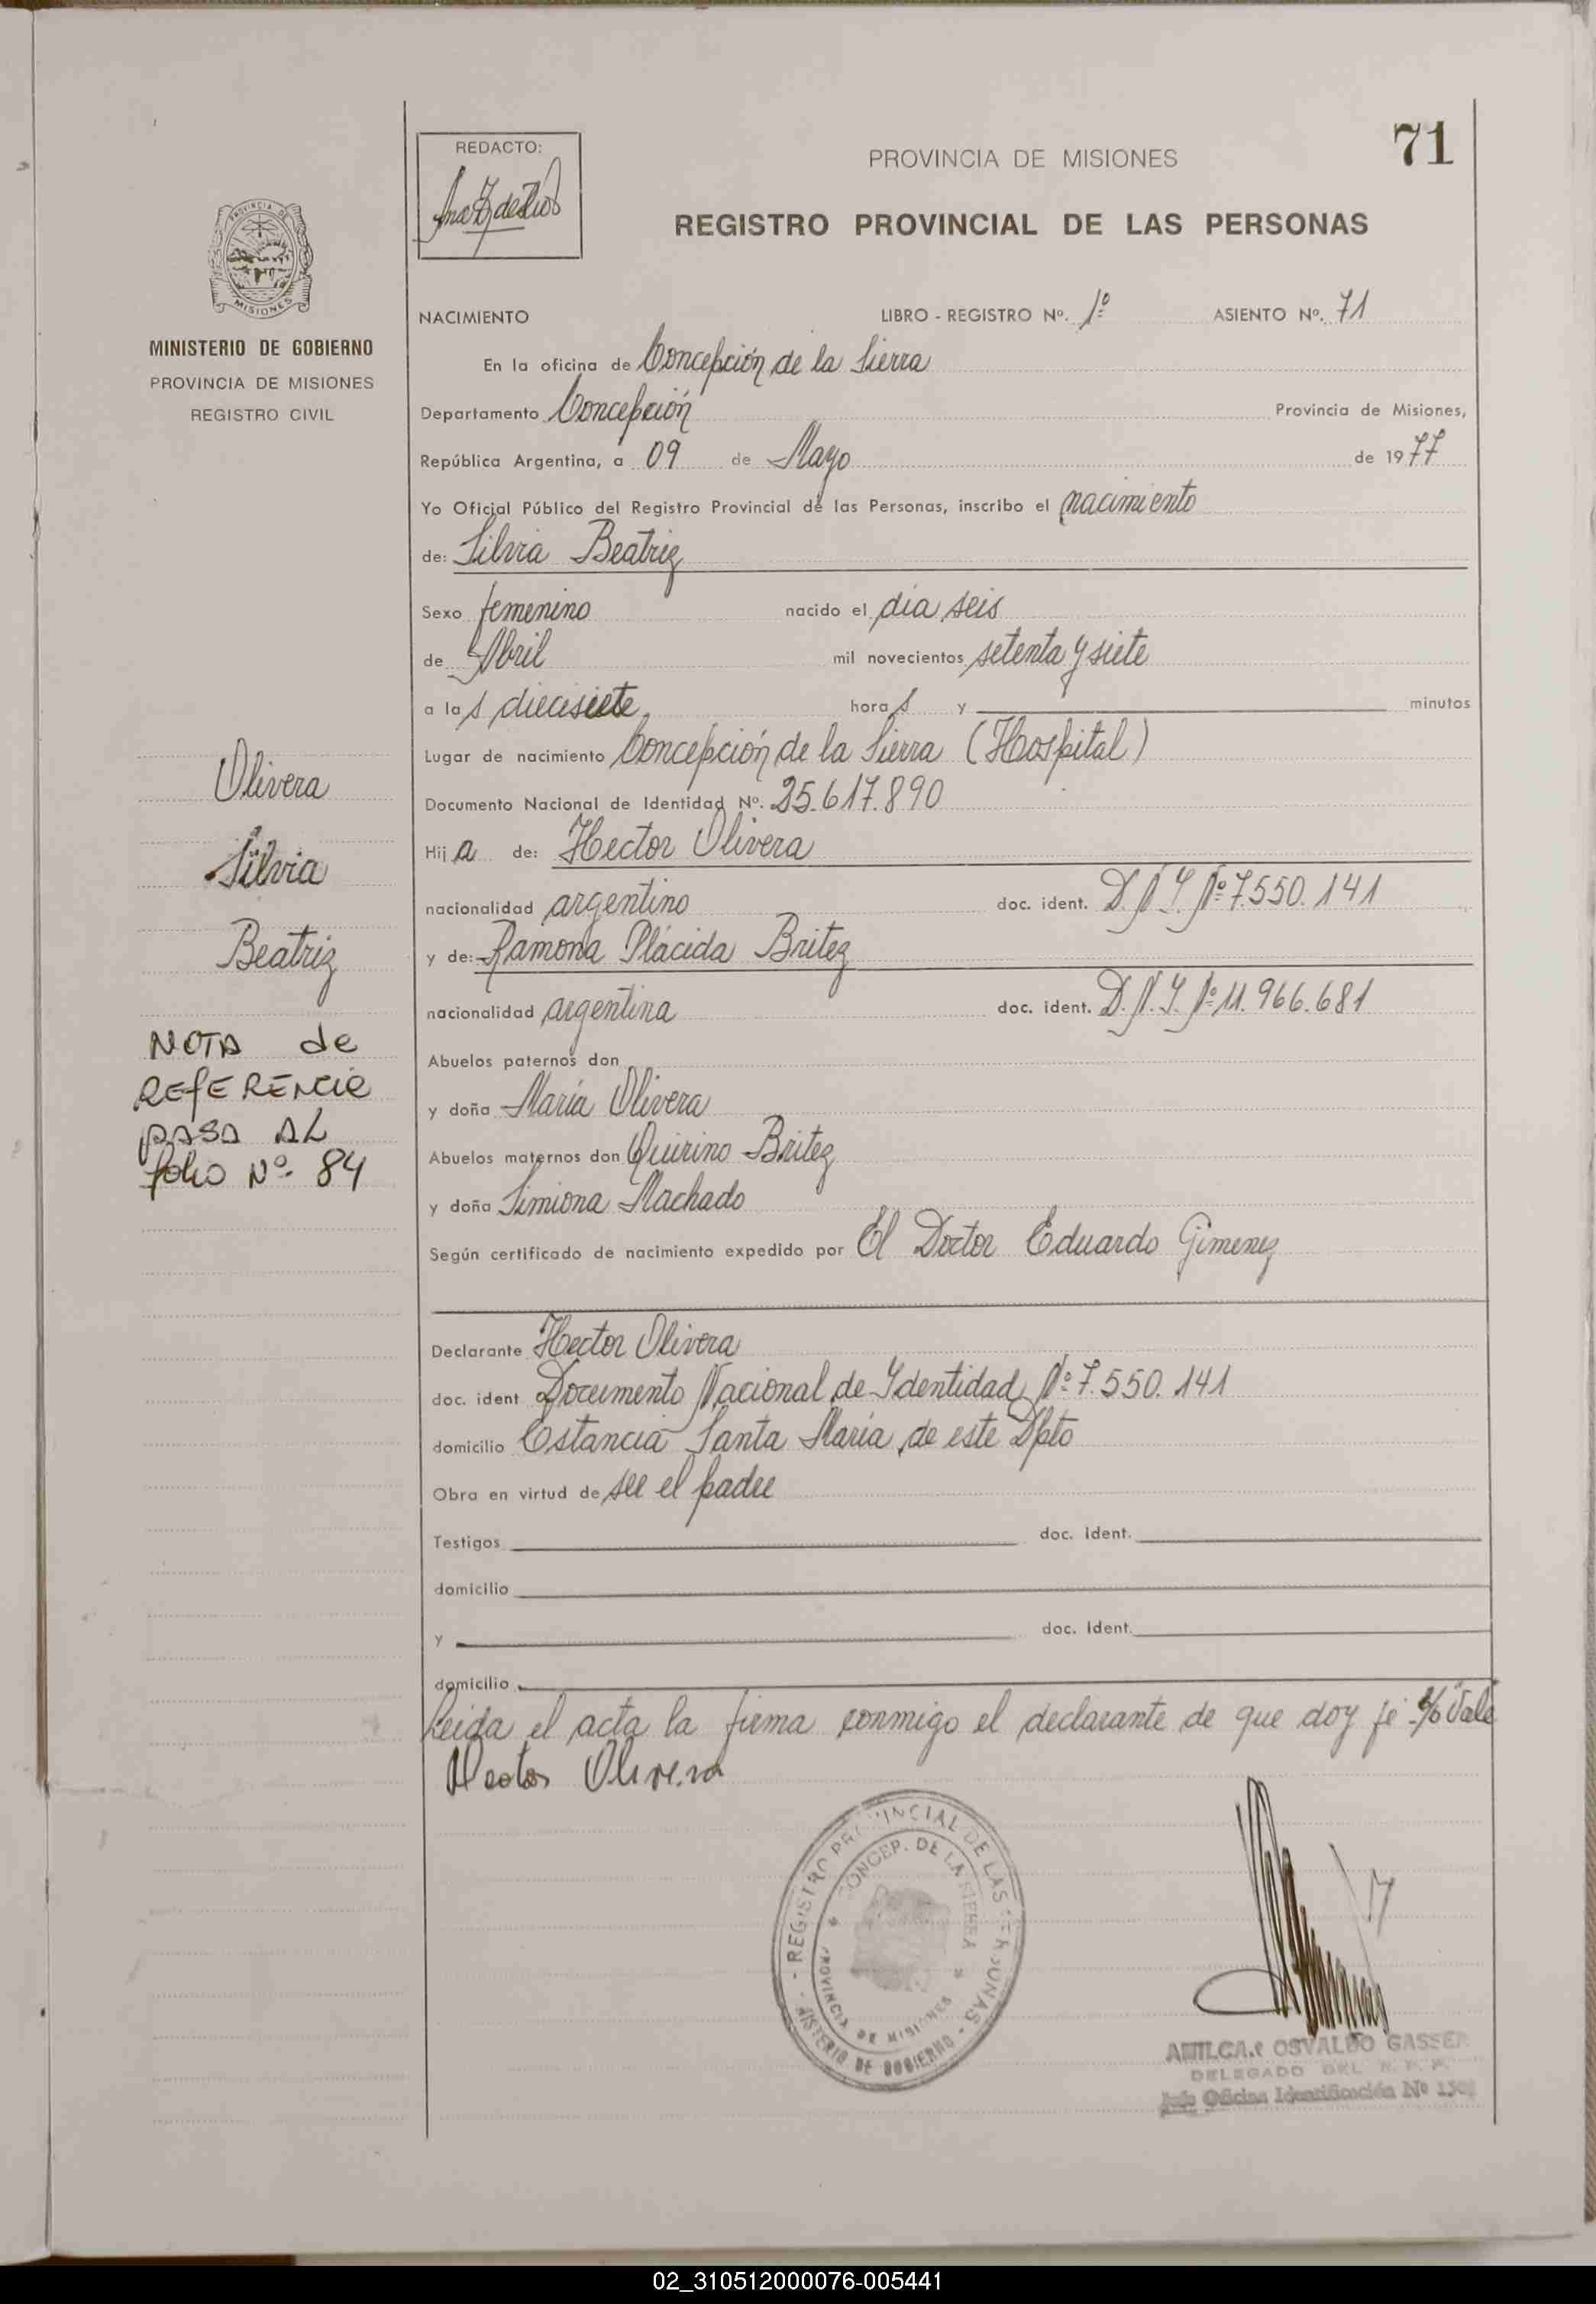 71
REDACTO:
PROVINCIA DE MISIONES
REGISTRO PROVINCIAL DE LAS PERSONAS
MISIONES
MINISTERIO DE GOBIERNO
PROVINCIA DE MISIONES
REGISTRO CIVIL
NACIMIENTO LIBRO - REGISTRO Nº. 1º ASIENTO Nº. 71
En la oficina de Concepción de la Sierra
Departamento Concepción Provincia de Misiones,
República Argentina, a 09 de Mayo de 1977
Yo Oficial Público del Registro Provincial de las Personas, inscribo el nacimiento
de: Silvia Beatriz
Sexo femenino nacido el día seis
de Abril mil novecientos setenta y siete
a las diecisiete hora s y minutos
Lugar de nacimiento Concepción de la Sierra (Hospital)
Documento Nacional de Identidad Nº. 25.617.890
Hij a de: Hector Olivera
nacionalidad argentino doc. ident. D.N.I. Nº 7.550.141
y de: Ramona Plácida Britez
nacionalidad argentina doc. ident. D.N.I. Nº 11.966.681
Abuelos paternos don
y doña María Olivera
Abuelos maternos don Quirino Britez
y doña Simiona Machado
Según certificado de nacimiento expedido por El Doctor Eduardo Gimenez
Declarante Hector Olivera
doc. ident Documento Nacional de Identidad Nº 7.550.141
domicilio Estancia Santa María de este Dpto
Obra en virtud de ser el padre
Testigos doc. ident.
domicilio
y doc. Ident.
domicilio
Leida el acta la firma conmigo el declarante de que doy fe Vale
Hector Olivera
Olivera
Silvia
Beatriz
NOTA de
REFERENCIA
PASA AL
folio Nº 84
REGISTRO PROVINCIAL DE LAS PERSONAS
CONCEP. DE LA SIERRA
PROVINCIA DE MISIONES
MINISTERIO DE GOBIERNO
AMILCAR OSVALDO GASSER
DELEGADO DEL R. P. P.
Jefe Oficina Identificación Nº
02_310512000076-005441